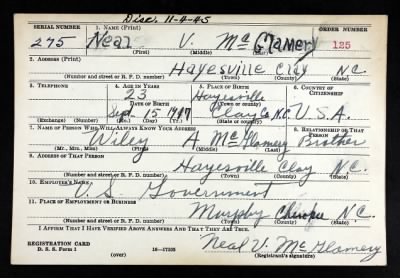 Disc. 11-4-45
SERIAL NUMBER 1. NAME (Print) ORDER NUMBER
275 Neal V. McGlamery 125
(First) (Middle) (Last)
2. ADDRESS (Print)
Hayesville Clay N.C.
(Number and street or R. F. D. number) (Town) (County) (State)
3. TELEPHONE 4. AGE IN YEARS 5. PLACE OF BIRTH 6. COUNTRY OF CITIZENSHIP
23 Hayesville
DATE OF BIRTH (Town or county)
Sept. 15 1917 Clay Co. N.C. U.S.A.
(Exchange) (Number) (Mo.) (Day) (Yr.) (State or country)
7. NAME OF PERSON WHO WILL ALWAYS KNOW YOUR ADDRESS 8. RELATIONSHIP OF THAT PERSON
Wiley A McGlamery Brother
(Mr., Mrs., Miss) (First) (Middle) (Last)
9. ADDRESS OF THAT PERSON
Hayesville Clay N.C.
(Number and street or R. F. D. number) (Town) (County) (State)
10. EMPLOYER'S NAME
U.S. Government
11. PLACE OF EMPLOYMENT OR BUSINESS
Murphy Cherokee N.C.
(Number and street or R. F. D. number) (Town) (County) (State)
I AFFIRM THAT I HAVE VERIFIED ABOVE ANSWERS AND THAT THEY ARE TRUE.
REGISTRATION CARD
D. S. S. Form 1 16-17105 Neal V. McGlamery
(over) (Registrant's signature)